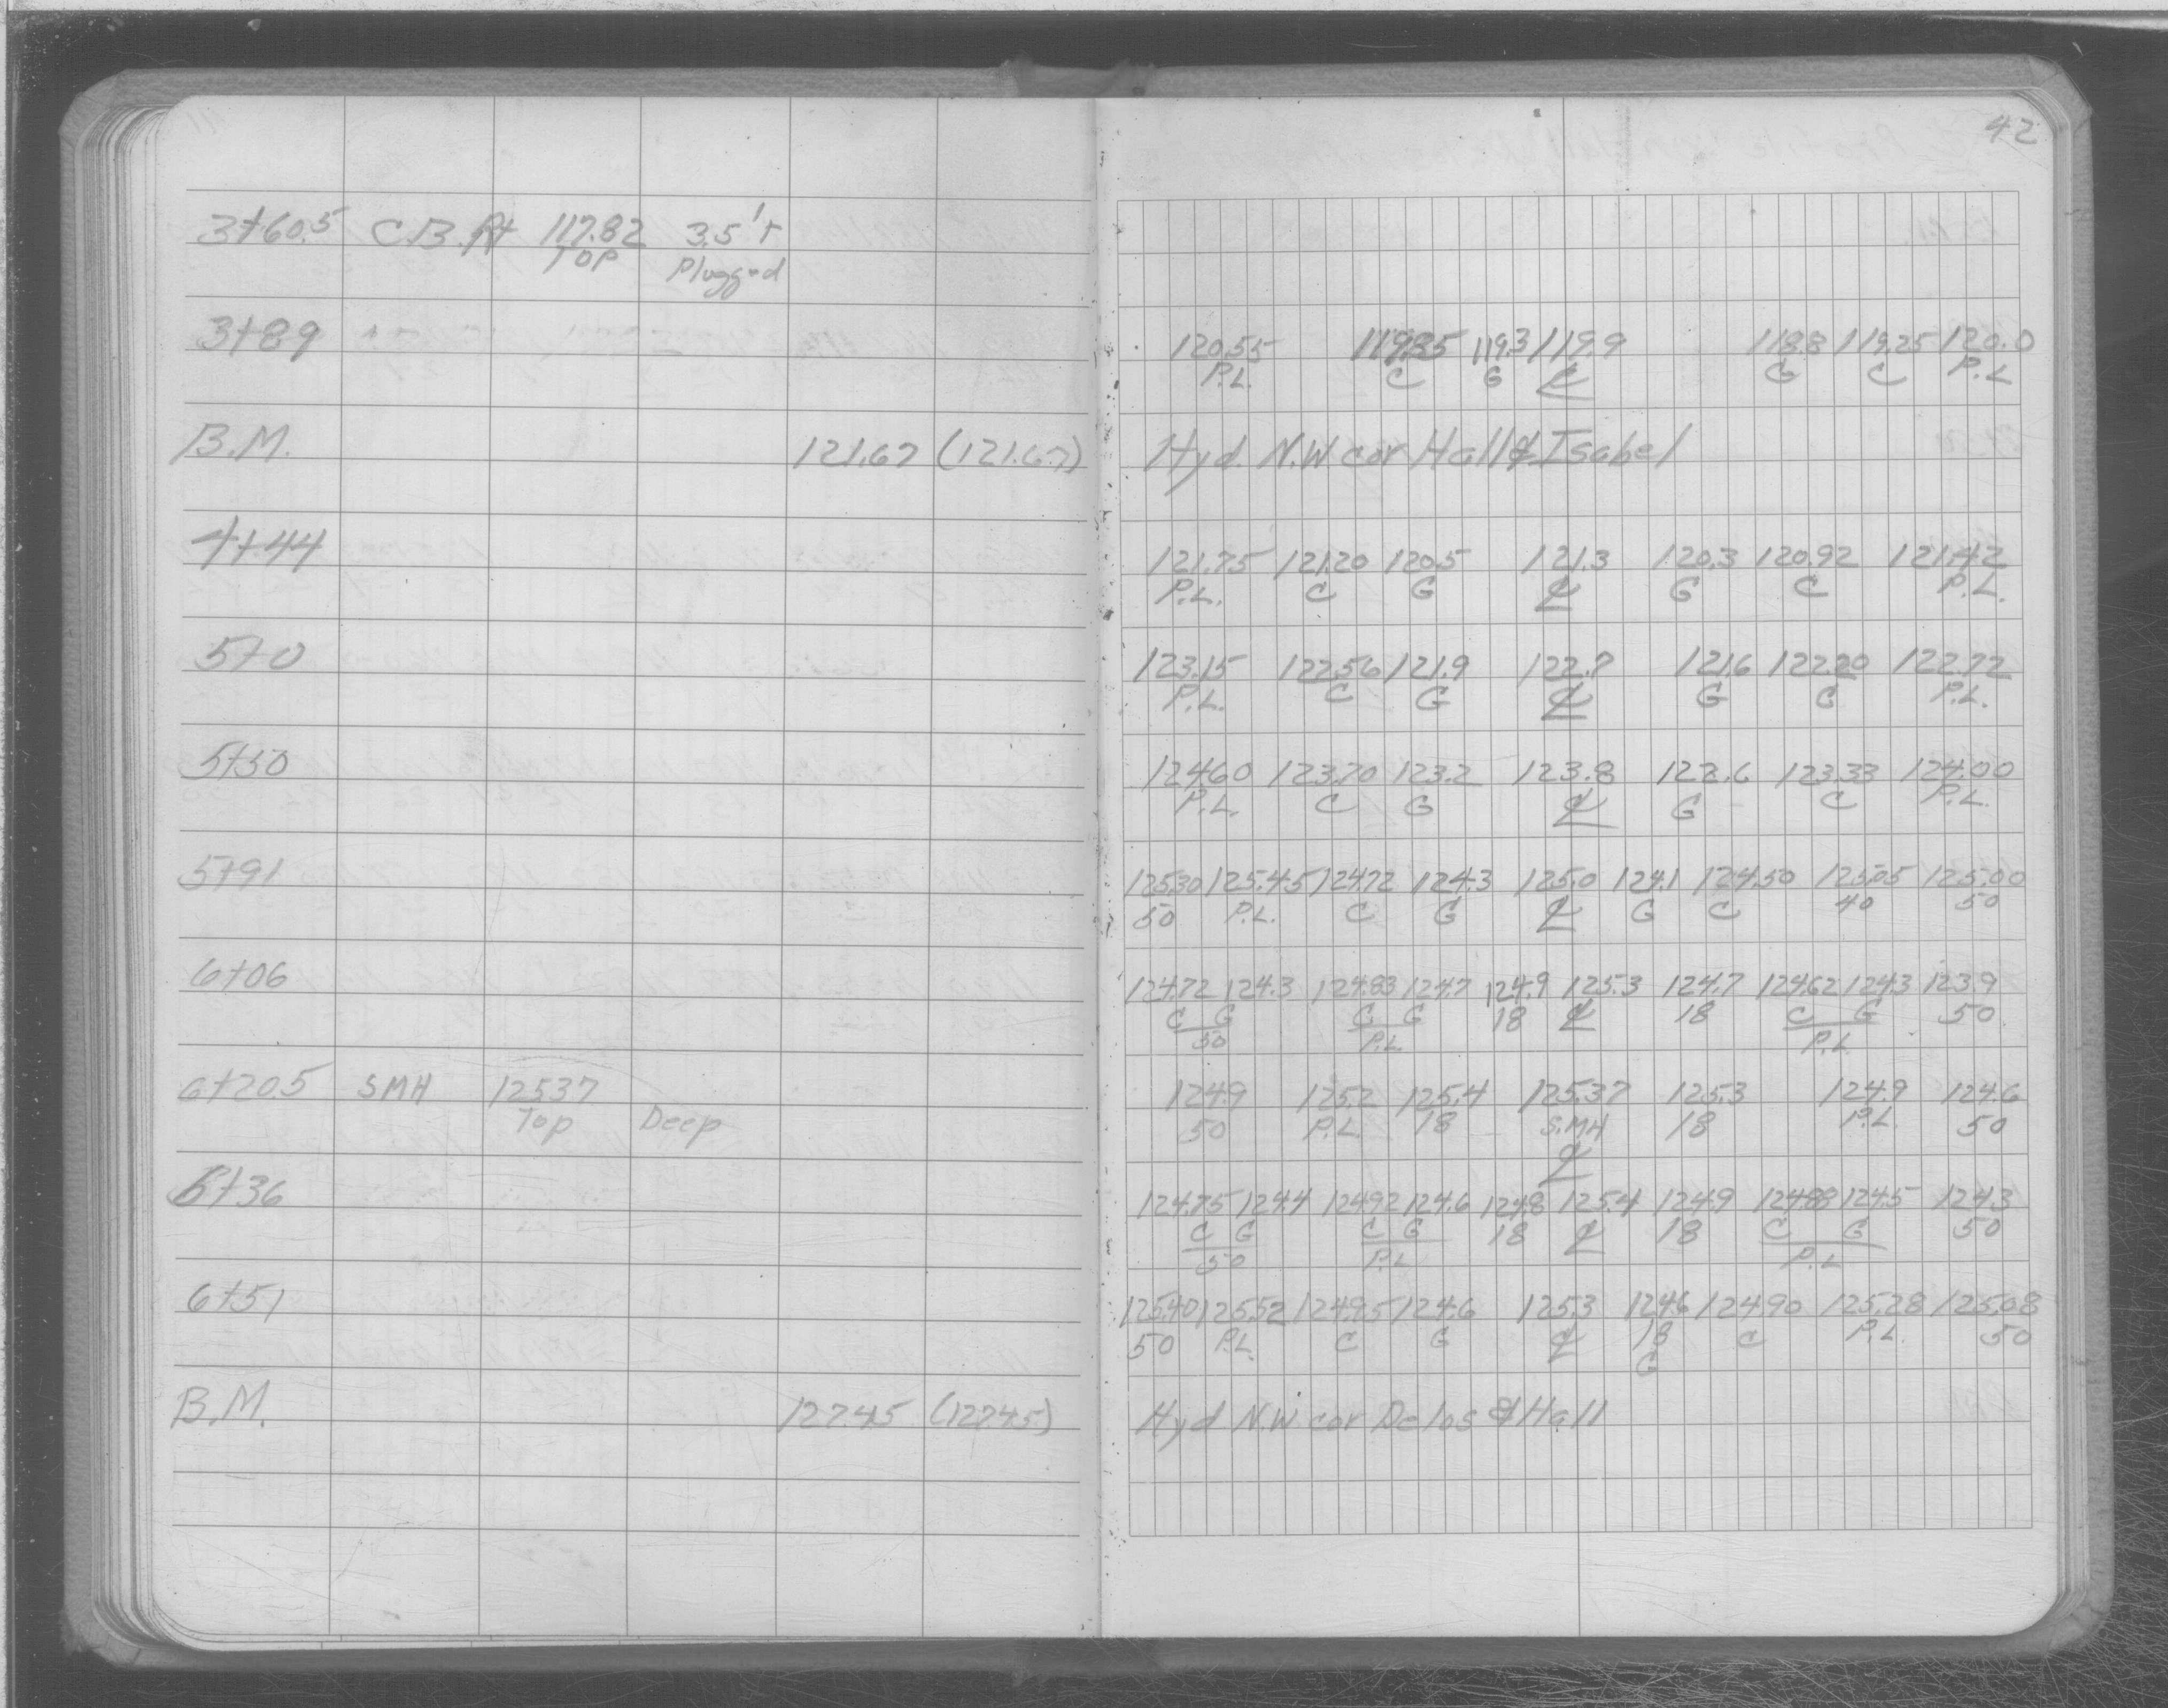 42
3+60.5 C.B. Rt 117.82 3.5'±
Top Plugged
3+89 120.55 119.85 119.3 119.9 118.8 119.25 120.0
P.L. C G ℄ G C P.L
B.M. 121.67 (121.67) Hyd. N.W cor Hall & Isabel
4+44 121.75 121.20 120.5 121.3 120.3 120.92 121.42
P.L. C G ℄ G C P.L.
5+0 123.15 122.56 121.9 122.7 121.6 122.20 122.72
P.L. C G ℄ G C P.L.
5+50 124.60 123.70 123.2 123.8 122.6 123.33 124.00
P.L. C G ℄ G C P.L.
5+91 125.30 125.45 124.72 124.3 125.0 124.1 124.50 125.05 125.00
50 P.L. C G ℄ G C 40 50
6+06 124.72 124.3 124.83 124.7 124.9 125.3 124.7 124.62 124.3 123.9
C G C G 18 ℄ 18 C G 50
50 P.L. P.L.
6+20.5 SMH 125.37 124.9 125.2 125.4 125.37 125.3 124.9 124.6
Top Deep 50 P.L. 18 S.MH 18 P.L. 50
℄
6+36 124.75 124.4 124.92 124.6 124.8 125.4 124.9 124.88 124.5 124.3
C G C G 18 ℄ 18 C G 50
50 P.L. P.L.
6+51 125.40 125.52 124.95 124.6 125.3 124.6 124.90 125.28 125.08
50 P.L. C G ℄ 18 C P.L. 50
G
B.M. 127.45 (127.45) Hyd N.W cor Delos & Hall